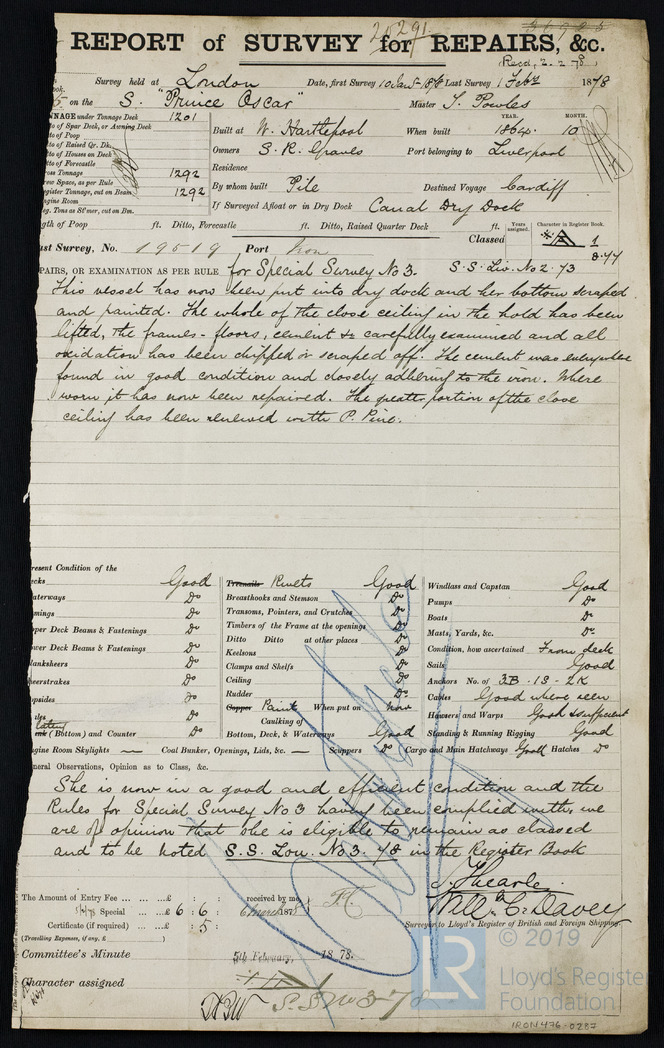 20291
REPORT of SURVEY for REPAIRS, &c.
Recd, 2.2.78
Survey held at London Date, first Survey 10 Jany 1878 Last Survey 1 Feby 1878
on the S. "Prince Oscar" Master J. Powles
NNAGE under Tonnage Deck 1201
to of Spar Deck, or Awning Deck
to of Poop
to of Raised Qr. Dk.
to of Houses on Deck
to of Forecastle
oss Tonnage 1292
rew Space, as per Rule
egister Tonnage, cut on Beam 1292
ngine Room
eg. Tons as St'mer, cut on Bm.
Built at W. Hartlepool When built YEAR. 1864. MONTH. 10
Owners S. R. Graves Port belonging to Liverpool
Residence
By whom built Pile Destined Voyage Cardiff
If Surveyed Afloat or in Dry Dock Canal Dry Dock
gth of Poop ft. Ditto, Forecastle ft. Ditto, Raised Quarter Deck ft.
Years assigned. Character in Register Book.
st Survey, No. 19519 Port Lon Classed A 1
8.77
PAIRS, OR EXAMINATION AS PER RULE for Special Survey No 3. S.S. Liv. No 2. 73
This vessel has now been put into dry dock and her bottom scraped
and painted. The whole of the close ceiling in the hold has been
lifted, the frames - floors, cement &c carefully examined and all
oxidation has been chipped or scraped off. The cement was everywhere
found in good condition and closely adhering to the iron. Where
worn it has now been repaired. The greater portion of the close
ceiling has been renewed with P. Pine.
resent Condition of the
ecks Good
aterways Do
mings Do
pper Deck Beams & Fastenings Do
ower Deck Beams & Fastenings Do
lanksheers Do
heerstrakes Do
opsides Do
les Do
(Bottom) and Counter Do
Treenails Rivets Good
Breasthooks and Stemson Do
Transoms, Pointers, and Crutches Do
Timbers of the Frame at the openings Do
Ditto Ditto at other places Do
Keelsons Do
Clamps and Shelfs Do
Ceiling Do
Rudder Do
Copper Paint When put on now
Caulking of
Bottom, Deck, & Waterways Good
Windlass and Capstan Good
Pumps Do
Boats Do
Masts, Yards, &c. Do
Condition, how ascertained From deck
Sails Good
Anchors No. of 3B. 1S - 2K
Cables Good where seen
Hawsers and Warps Good & sufficient
Standing & Running Rigging Good
ngine Room Skylights — Coal Bunker, Openings, Lids, &c. — Scuppers Do Cargo and Main Hatchways Good Hatches Do
neral Observations, Opinion as to Class, &c.
She is now in a good and efficient condition and the
Rules for Special Survey No 3 having been complied with, we
are of opinion that she is eligible to remain as classed
and to be noted S.S. Lon. No. 3. 78 in the Register Book
The Amount of Entry Fee ... ... ...£ : : received by me,
Special ... ...£ 6 : 6 : 6 March 1878
Certificate (if required) ... : 5
(Travelling Expenses, if any, £ )
Will. C. Davey
Surveyor to Lloyd's Register of British and Foreign Shipping.
Committee's Minute 5th February, 1878.
Character assigned
S.S. No 3-78
© 2019
LR
Lloyd's Register
Foundation
IRON476-0287